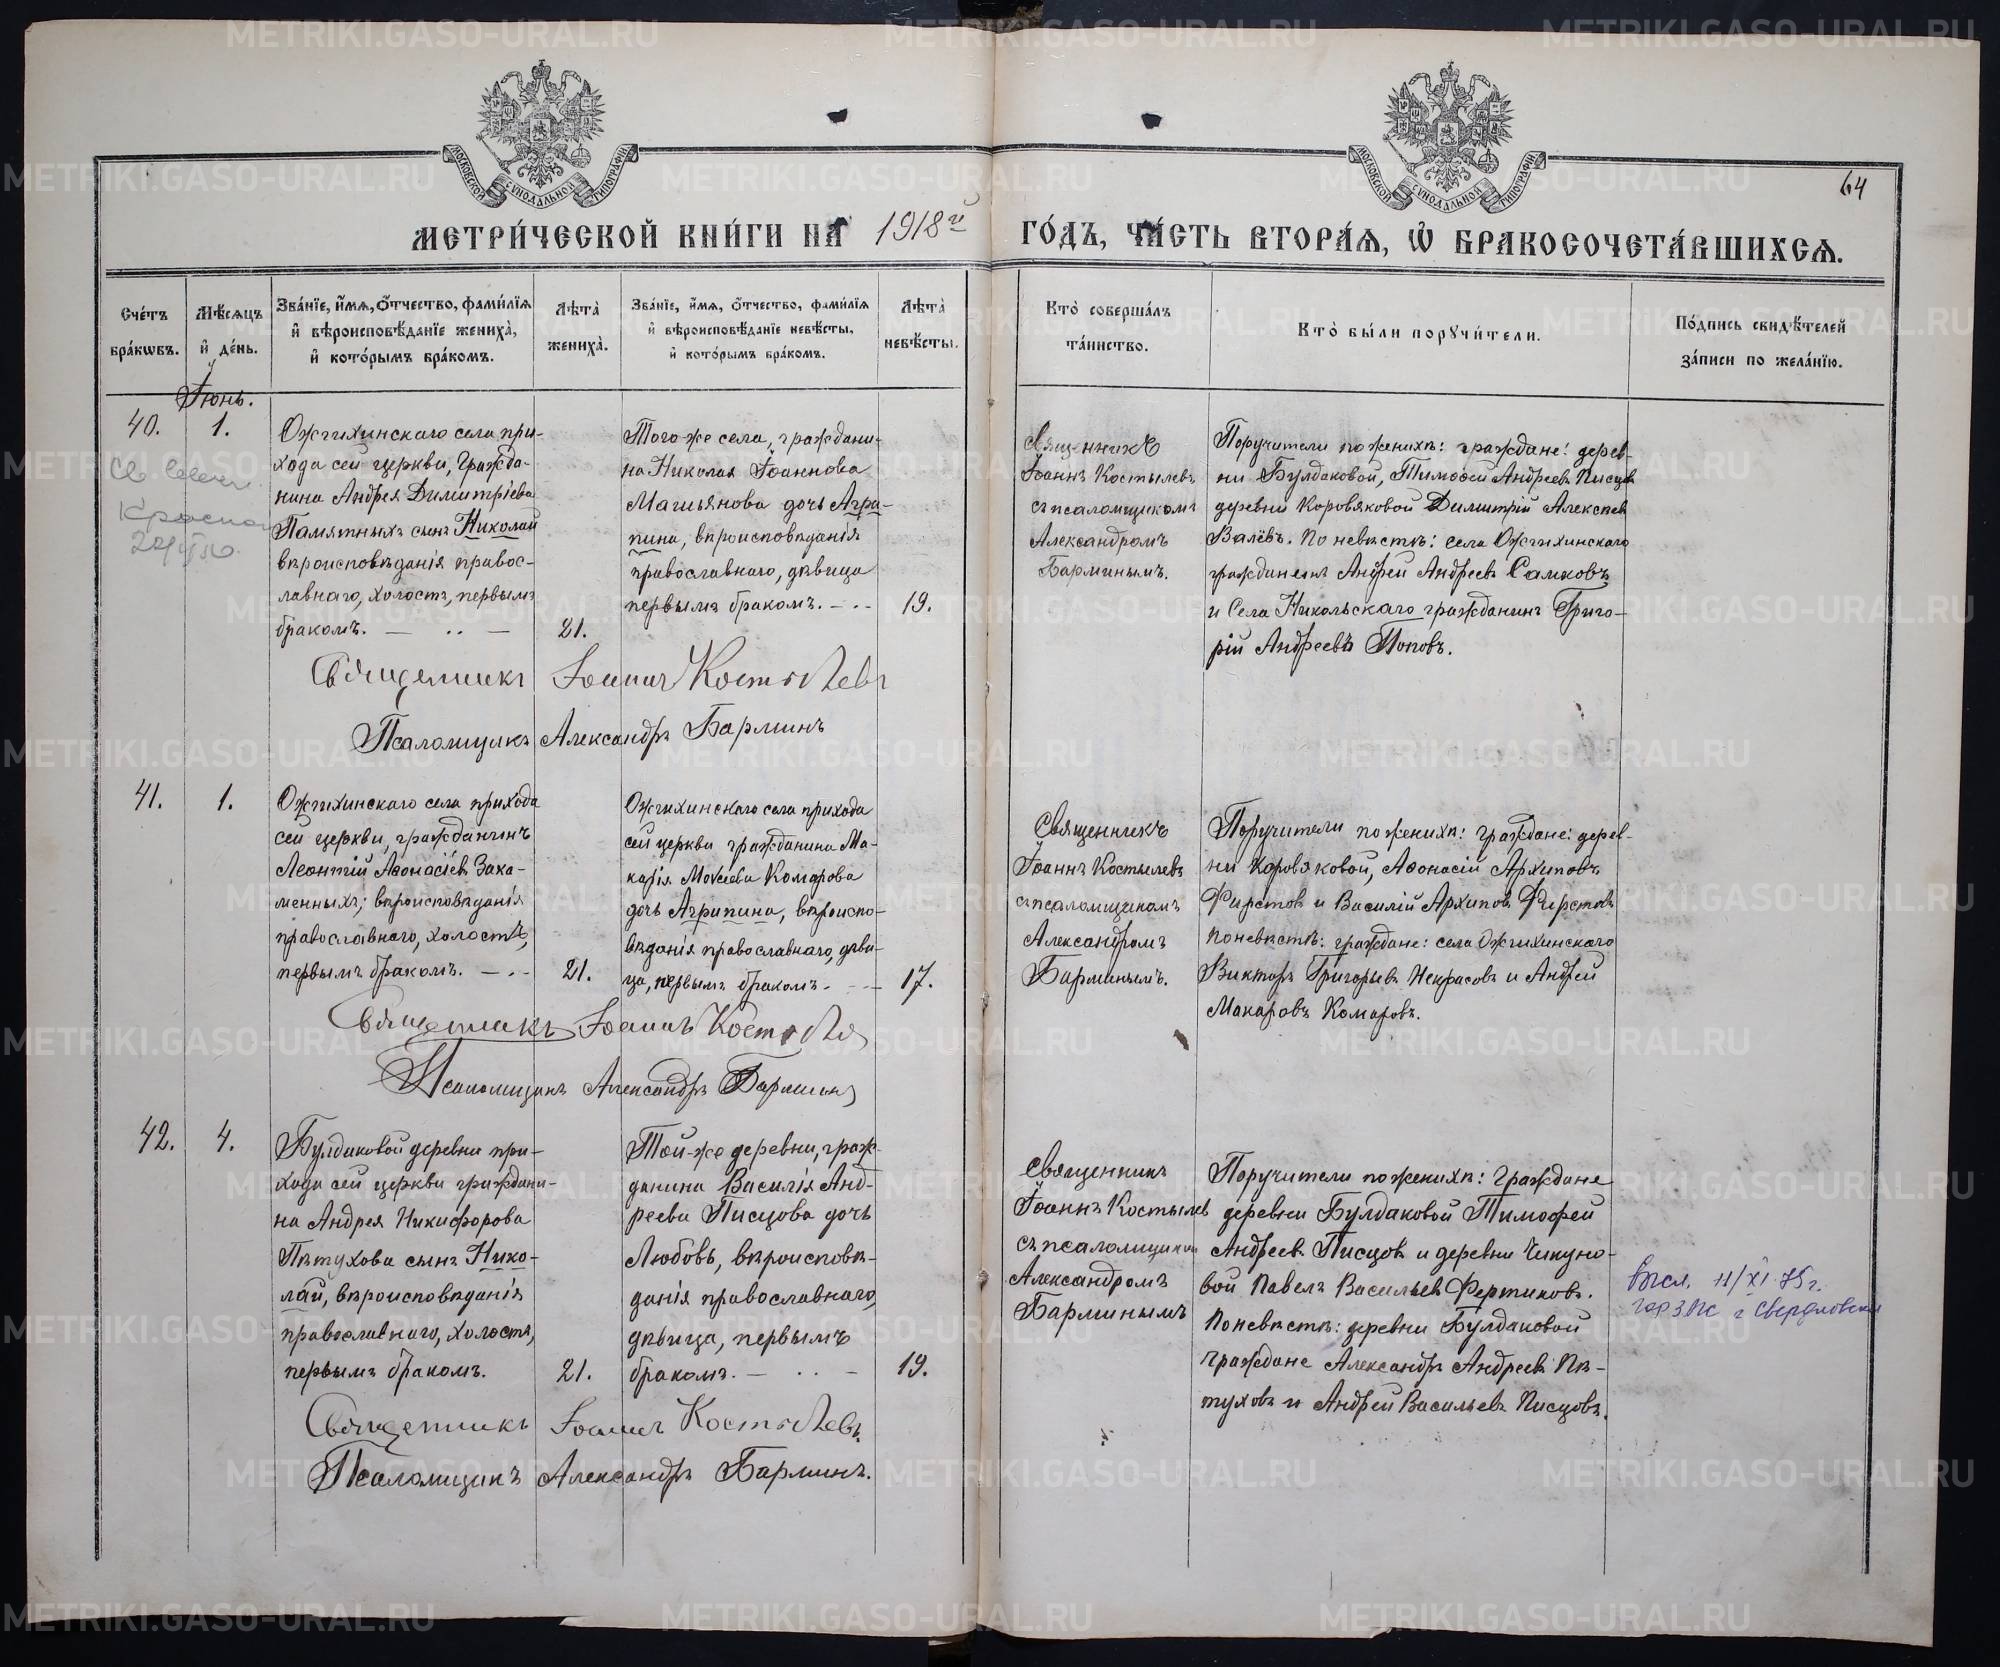 МЕТРИ́ЧЕСКОЙ КНИ́ГИ НА 1918й
ГО́ДЪ, ЧА́СТЬ ВТОРА́Я, Ѡ БРАКОСОЧЕТА́ВШИХСЯ.
64
МОСКОВСКОЙ СѴНОДАЛЬНОЙ ТИПОГРАФІИ
МОСКОВСКОЙ СѴНОДАЛЬНОЙ ТИПОГРАФІИ
Сче́тъ бра́кѡвъ.
Мѣ́сяцъ и҆ де́нь.
Зва́нїе, и҆́мя, ѻ҆́тчество, фами́лїя
и҆ вѣроисповѣ́данїе жениха̀,
и҆ кото́рымъ бра́комъ.
Лѣ́та жениха̀.
Зва́нїе, и҆́мя, ѻ҆́тчество, фами́лїя
и҆ вѣроисповѣ́данїе невѣ́сты,
и҆ кото́рымъ бра́комъ.
Лѣ́та невѣ́сты.
Кто̀ соверша́лъ
та́инство.
Кто̀ бы́ли порꙋчи́тели.
По́дпись свидѣ́телей
за́писи по жела́нїю.
Іюнь.
40.
1.
Ожгихинскаго села при-
хода сей церкви, гражда-
нина Андрея Димитріева
Памятныхъ сынъ Николай
вѣроисповѣданія правос-
лавнаго, холостъ, первымъ
бракомъ.
21.
Того-же села, граждани-
на Николая Іоаннова
дочь Агри-
пина, вѣроисповѣданія
православнаго, дѣвица
первымъ бракомъ.
19.
Священникъ
Іоаннъ Костылевъ
съ псаломщикомъ
Александромъ
Барминымъ.
Поручители по женихѣ: граждане: дерев-
ни Булдаковой, Тимофей Андреевъ Писцовъ
деревни Коровяковой Димитрій Алексѣевъ
Валёвъ. По невѣстѣ: села Ожгихинскаго
гражданинъ Андрей Андреевъ Самковъ
и Села Никольскаго гражданинъ Григо-
рій Андреевъ Поповъ.
Священникъ Іоаннъ Костылевъ
Псаломщикъ Александръ Барминъ
41.
1.
Ожгихинскаго села прихода
сей церкви, гражданинъ
Леонтій Аѳонасіевъ Зака-
менныхъ, вѣроисповѣданія
православнаго, холостъ,
первымъ бракомъ.
21.
Ожгихинскаго села прихода
сей церкви гражданина Ма-
карія Моисеева Комарова
дочь Агрипина, вѣроиспо-
вѣданія православнаго, дѣви-
ца, первымъ бракомъ.
17.
Священникъ
Іоаннъ Костылевъ
съ псаломщикомъ
Александромъ
Барминымъ.
Поручители по женихѣ: граждане: дерев-
ни Коровяковой, Аѳонасій Архиповъ
Фирстовъ и Василій Архиповъ Фирстовъ
По невѣстѣ: граждане: села Ожгихинскаго
Викторъ Григорьевъ Некрасовъ и Андрей
Макаровъ Комаровъ.
Священникъ Іоаннъ Костылев
Псаломщикъ Александръ Барминъ
42.
4.
Булдаковой деревни при-
хода сей церкви граждани-
на Андрея Никифорова
Пѣтухова сынъ Нико-
лай, вѣроисповѣданія
православнаго, холостъ,
первымъ бракомъ.
21.
Той-же деревни, граж-
данина Василія Анд-
реева Писцова дочь
Любовь, вѣроисповѣ-
данія православнаго,
дѣвица, первымъ
бракомъ.
19.
Священникъ
Іоаннъ Костылевъ
съ псаломщикомъ
Александромъ
Барминымъ
Поручители по женихѣ: граждане
деревни Булдаковой Тимофей
Андреевъ Писцовъ и деревни Чикуно-
вой Павелъ Васильевъ Фертиковъ.
По невѣстѣ: деревни Булдаковой
граждане Александръ Андреевъ Пѣ-
туховъ и Андрей Васильевъ Писцовъ.
11/XI 75 г.
г Свердловска
Священникъ Іоаннъ Костылевъ.
Псаломщикъ Александръ Барминъ.
METRIKI.GASO-URAL.RU